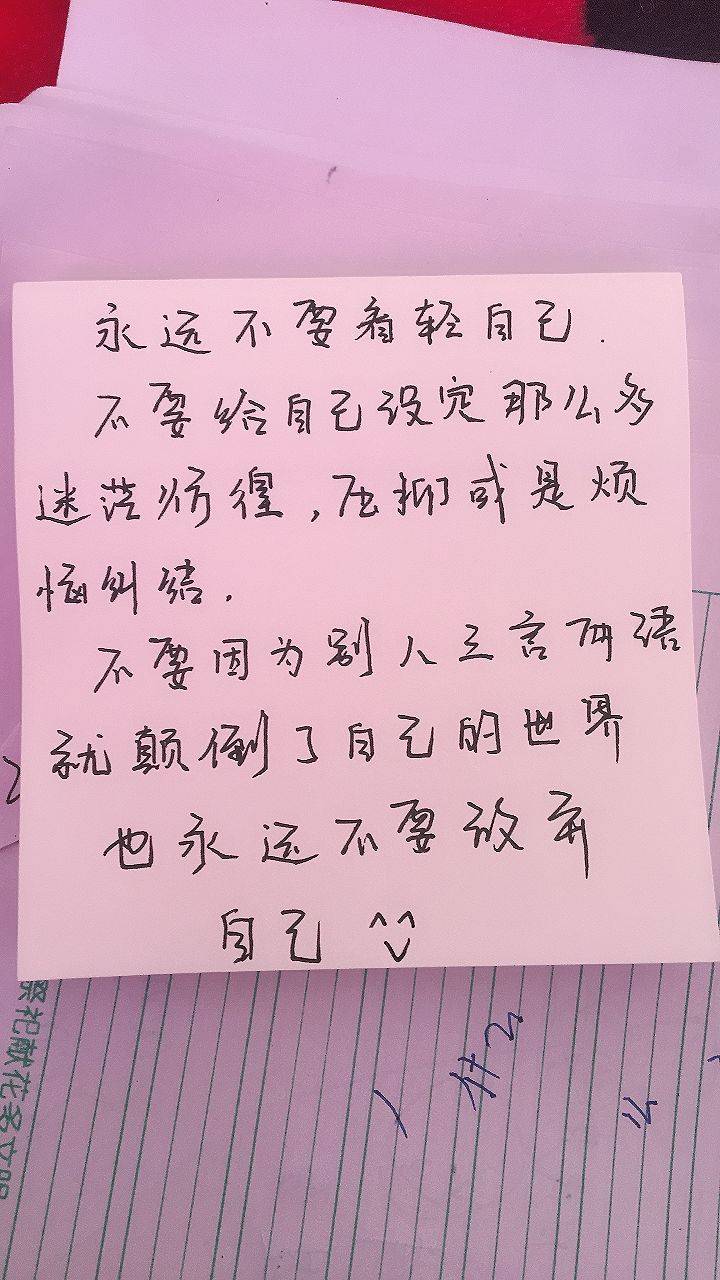 永远不要看轻自己.
不要给自己设定那么多
迷茫彷徨,压抑或是烦
恼纠结.
不要因为别人三言两语
就颠倒了自己的世界
也永远不要放弃
自己 ^v^